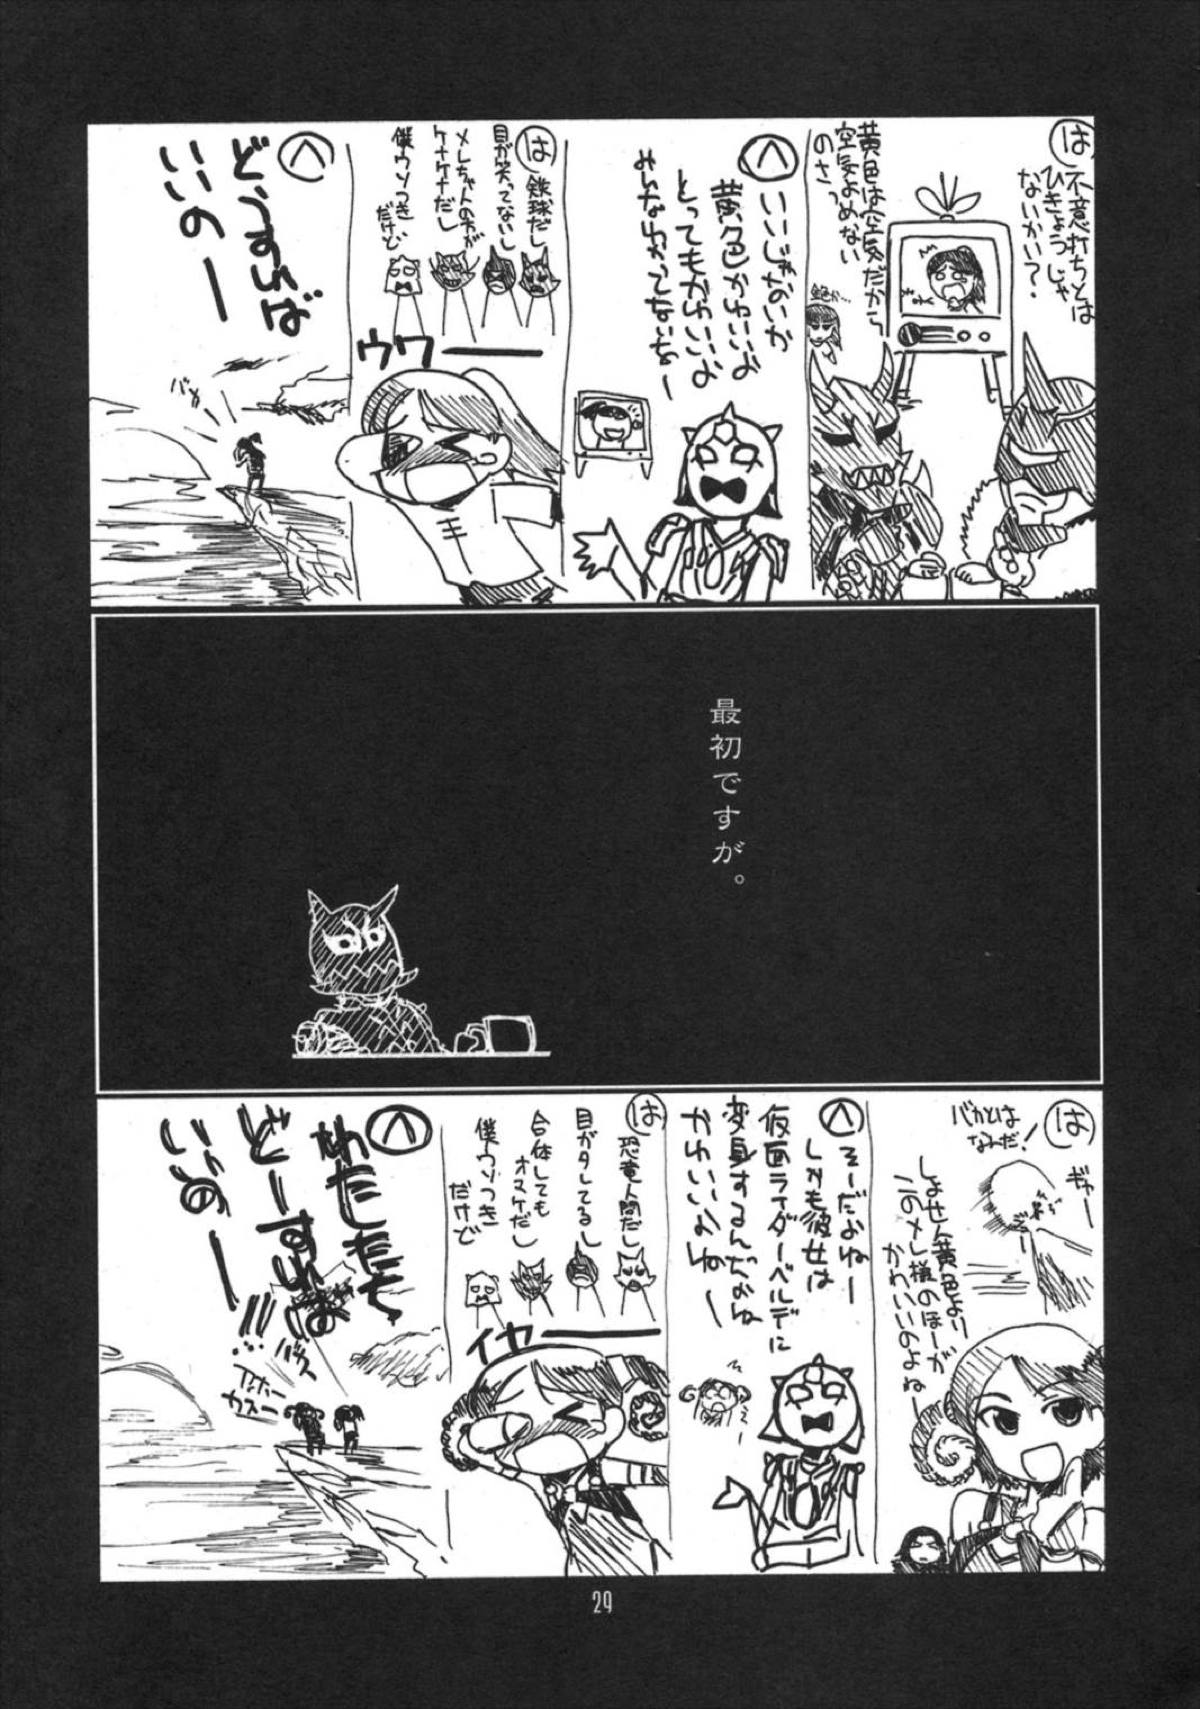 は
不意打ちとは
ひきょうじゃ
ないかい？
黄色は空気だから
空気よめない
のさっ
へ
いいじゃないか
黄色かわいいよ
とってもかわいいよ
みんなわかってないなー
は
鉄球だし
目が笑ってないし
メレちゃんの方が
ケナケナだし
僕ウソつき
だけど
ウワー
へ
どうすりゃば
いいのー
バカー
最初ですが。
は
バカとは
なんだ！
ギャー
しょせん黄色より
このメレ様のほーが
かわいいのよねー
へ
そーだよねー
しかも彼女は
仮面ライダーベルデに
変身するんだよね
かわいいよねー
は
恐竜人間だし
目がタレてるし
合体しても
オマケだし
僕ウソつき
だけど
イヤー
へ
わたしたち
どーすれば
いいのー
29